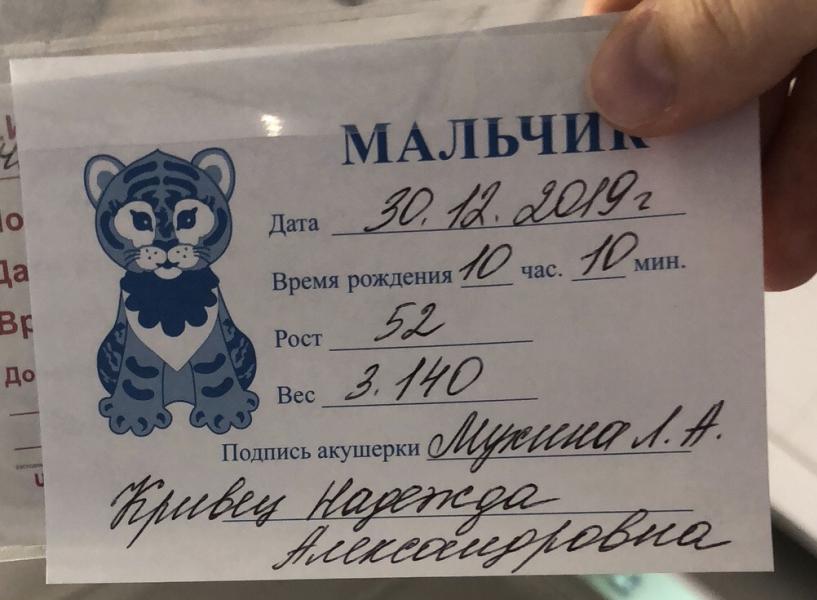 МАЛЬЧИК
Дата 30.12.2019г
Время рождения 10 час. 10 мин.
Рост 52
Вес 3.140
Подпись акушерки Мухина Л.А.
Кривец Надежда
Александровна